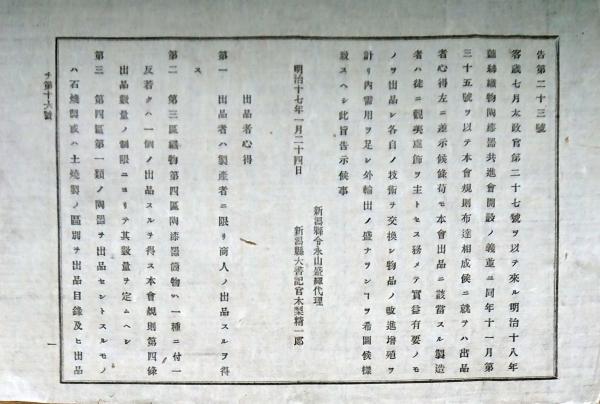 告第二十三號
客歳七月太政官第二十七號ヲ以テ來ル明治十八年
蠶絲織物陶漆器共進會開設ノ義並ニ同年十一月第
三十五號ヲ以テ本會規則布達相成候ニ就テハ出品
者心得左ニ差示候條苟モ本會出品ニ該當スル製造
者ハ徒ニ觀美虛飾ヲ主トセス務メテ實益有要ノモ
ノヲ出品シ各自ノ技術ヲ交換シ物品ノ改進增殖ヲ
計リ內需用ヲ足シ外輸出ノ盛ナランヿヲ希圖候樣
致スヘシ此旨告示候事
新潟縣令永山盛輝代理
明治十七年一月二十四日 新潟縣大書記官木梨精一郎
出品者心得
第一 出品者ハ製產者ニ限リ商人ノ出品スルヲ得
ス
第二 第三區織物第四區陶漆器ノ物ハ一種ニ付一
反若クハ一個ノ出品スルヲ得ス本會規則第四條
出品數量ノ制限ニヨリテ其數量ヲ定ムヘシ
第三 第四區第一類ノ陶器ヲ出品セントスルモノ
ハ石燒製或ハ土燒製ノ區別ヲ出品目錄及ヒ出品
チ第十六號
一